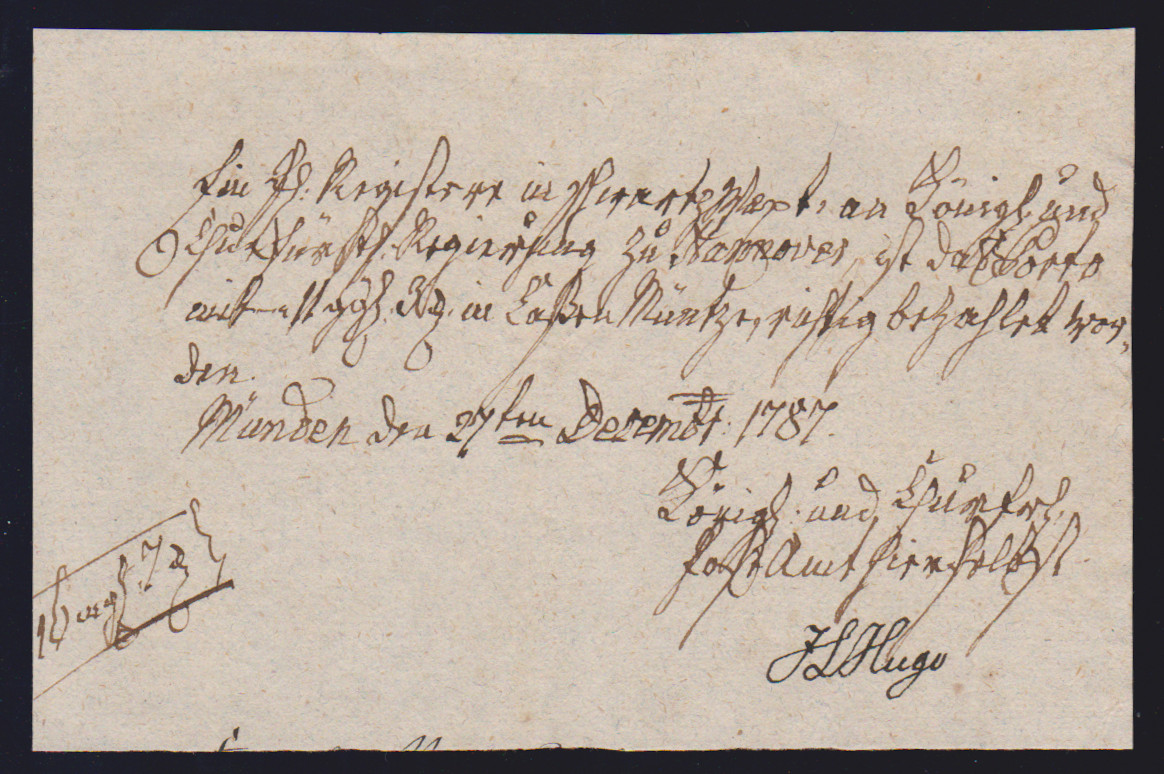 Ein Pf. Registere in schwartz Wapt. an Königl. und
Churfürstl. Regierung zu Hannover, ist das Porto
mit ggl. in Caßen Müntze, richtig bezahlet wor„
den.
Münden den 27ten Decembr: 1787.
Königl. und Churfrl.
Post Amt hierselbst.
JLHugo